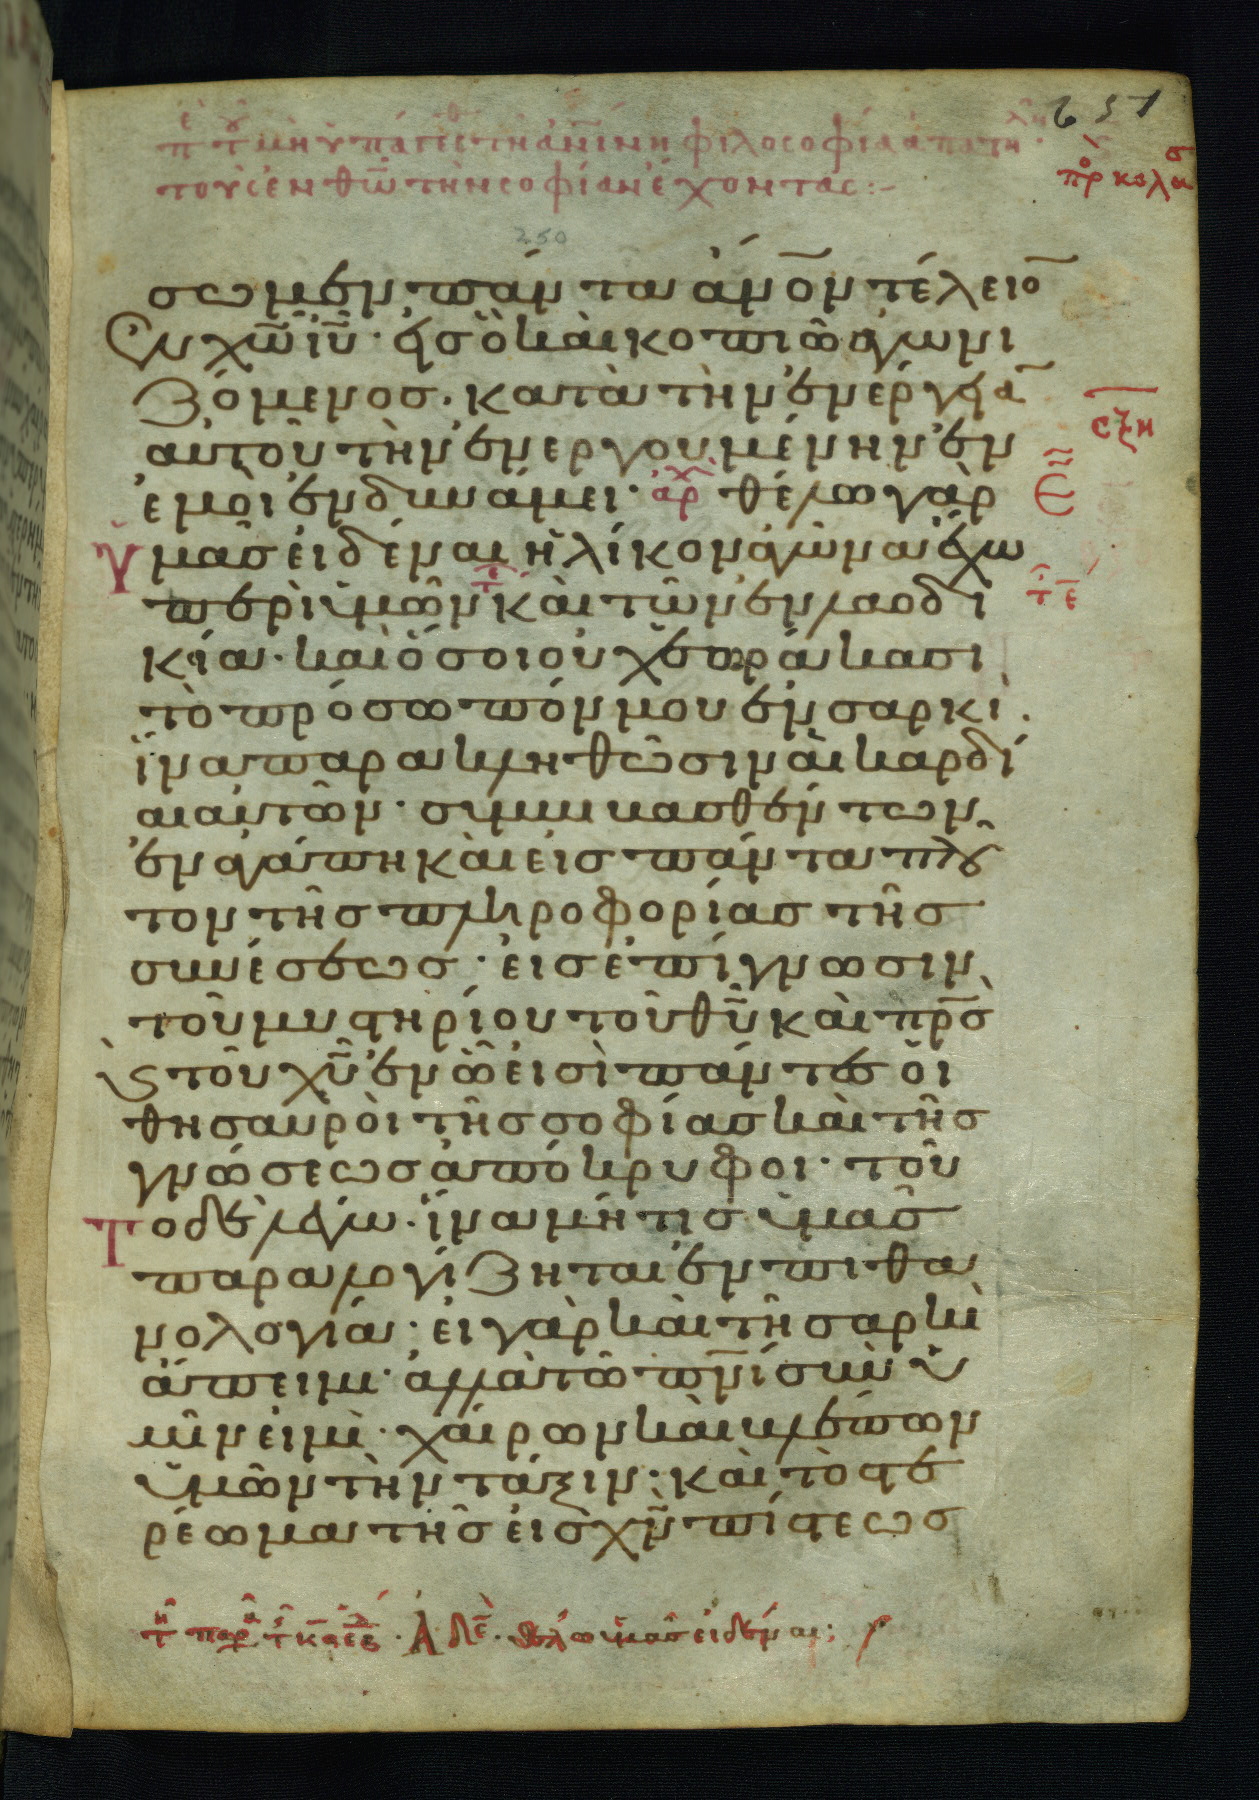 π τ μὴ ὑπάγεσθ τῆ ἀνινη φιλοσοφία ἀπατη
τοὺς ἐν θῶ τὴν σοφίαν ἔχοντας:-
651
πρ κολασ
250
σωμεν πάντα ἀν̅ο̅ν τέλειο̅
ἐν χω̅ ιυ̅· εἰς ὃ καὶ κοπιῶ ἀγωνι
ζόμενος· κατὰ τὴν ἐνέργεια̅
αὐτοῦ τὴν ἐνεργουμένην ἐν
ἐμοὶ ἐν δυνάμει· ἀρχ θέλω γὰρ
ὑμᾶς εἰδέναι ἡλίκον ἀγῶνα ἔχω
περὶ ὑμῶν καὶ τῶν ἐν λαοδι
κία· καὶ ὅσοι οὐχ ἑωράκασι
τὸ πρόσωπόν μου ἐν σαρκί·
ἵνα παρακληθῶσιν αἱ καρδί
αι αὐτῶν· συμβιβασθέντων
ἐν ἀγάπη καὶ εἰς πάντα πλοῦ
τον τῆς πληροφορίας τῆς
συνέσεως· εἰς ἐπίγνωσιν
τοῦ μυστηρίου τοῦ θυ̅ καὶ πρ̅σ
ϗ τοῦ χυ̅ ἐν ᾧ εἰσὶ πάντες οἱ
θησαυροὶ τῆς σοφίας καὶ τῆς
γνώσεως ἀπόκρυφοι· τοῦ
το δὲ λέγω· ἵνα μή τις ὑμᾶς
παραλογίζηται ἐν πιθα
νολογία· εἰ γὰρ καὶ τῆ σαρκὶ
ἄπειμι· ἀλλὰ τῶ πν̅ι σὺν ὑ
μῖν εἰμὶ· χαίρων καὶ βλέπων
ὑμῶν τὴν τάξιν· καὶ τὸ στε
ρέωμα τῆς εἰς χν̅ πίστεως
σξη
τ ε
τ παρ τ κς εβ· ἀδε· θέλω ὑμᾶς εἰδέναι: